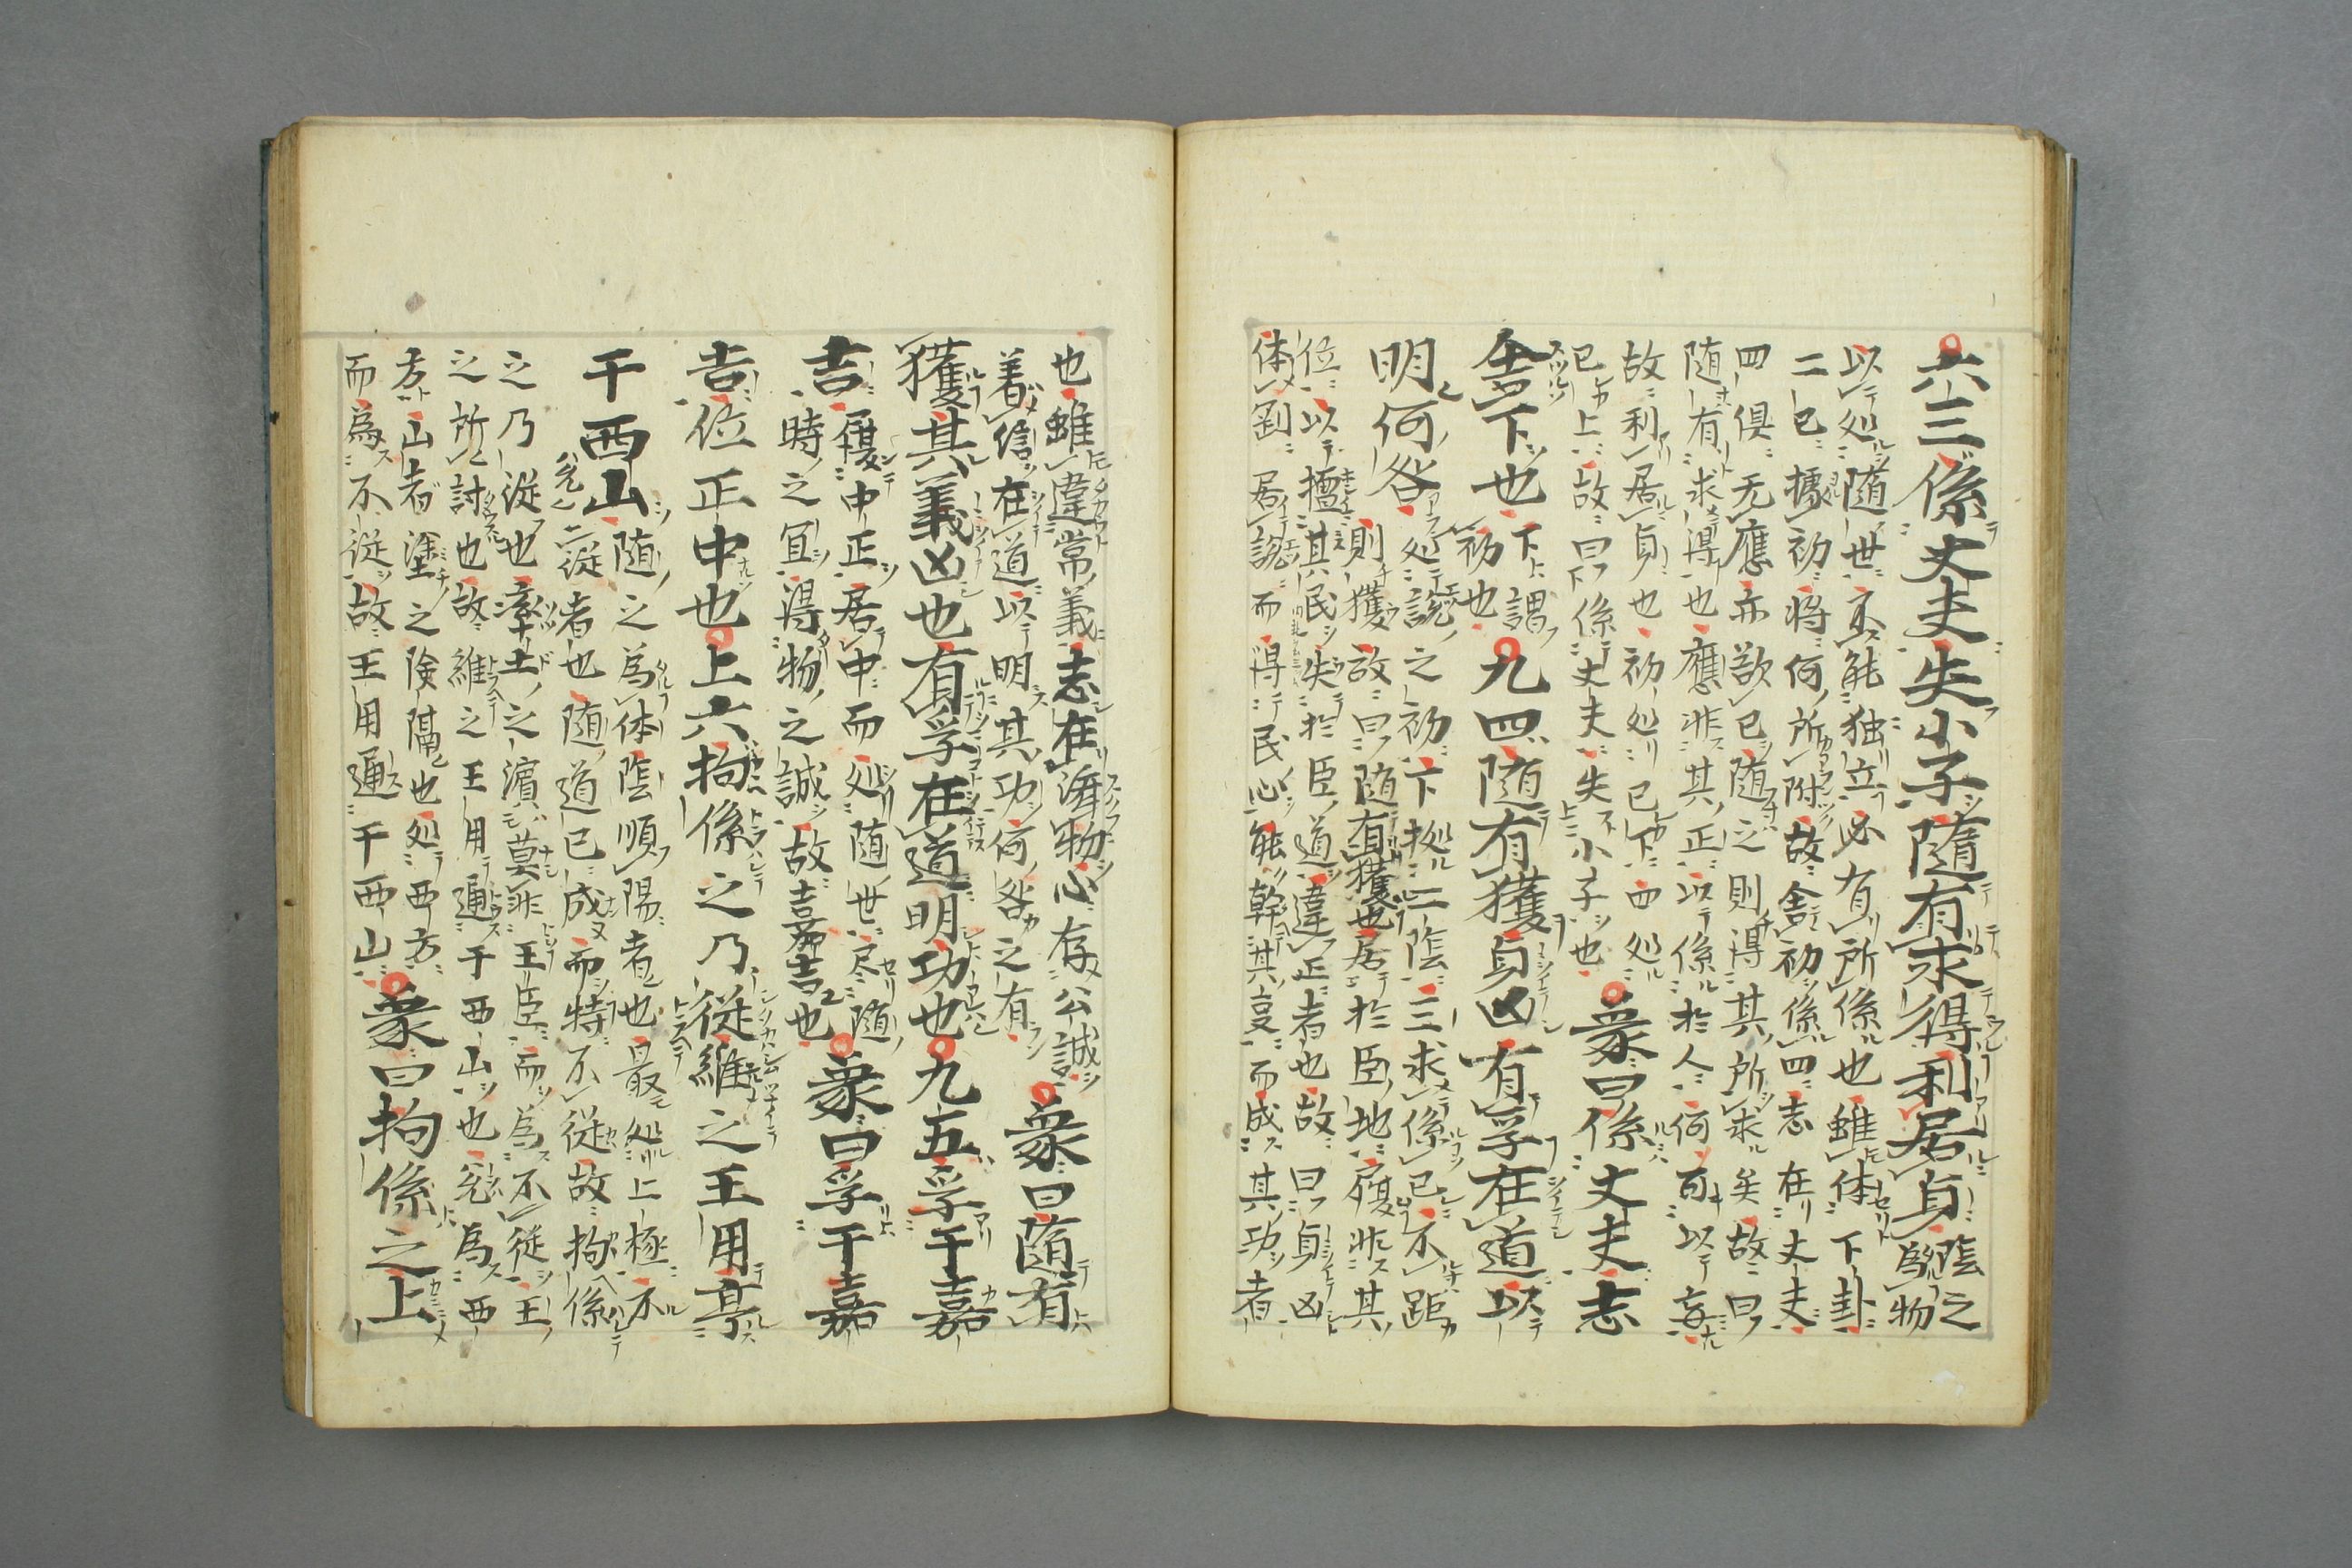 六三係丈夫失小子随有求得利居貞 陰之
為物
以処随世不能独立必有所係也雖体下卦
二已據初将何所附故舎初係四志在丈夫
四俱无應亦欲已随之則得其所求矣故曰
随有求得也應非其正以係於人何可以妄
故利居貞也初処已下四処
已上故曰係丈夫失小子也 象曰係丈夫志
舎下也 下謂
初也 九四随有獲貞凶有孚在道以
明何咎 処説之初下拠二陰三求係已不距
則獲故曰随有獲也居於臣地履非其
位以擅其民失於臣道違正者也故曰貞凶
体剛居説而得民心能幹其㕝而成其功者
也雖違常義志在済物心存公誠
着信在道以明其功何咎之有 象曰随有
獲其義凶也有孚在道明功也九五孚于嘉
吉 履中正居中而処随世尽随
時之宜得物之誠故嘉吉也 象曰孚于嘉
吉位正中也上六拘係之乃従維之王用亨
于西山 随之為体陰順陽者也最処上極不
従者也随道已成而特不従故拘係
之乃従也率土之濱莫非王臣而為不従王
之所討也故維之王用通于西山也兌為西
方山者塗之険隔也処西方
而為不従故王用通于西山 象曰拘係之上